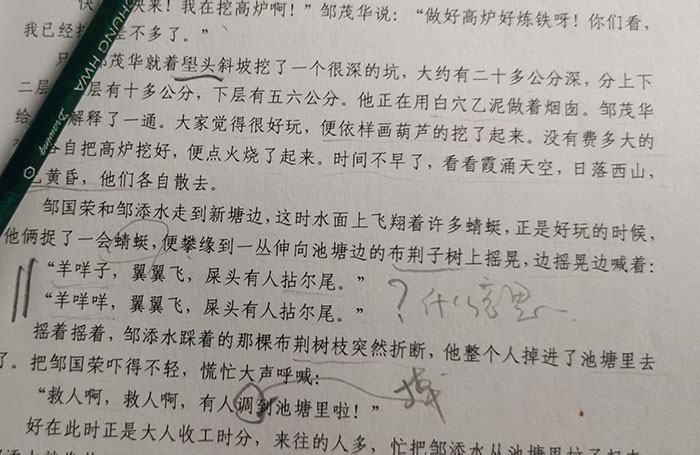 来！我在挖高炉啊！”邹茂华说：“做好高炉好炼铁呀！你们看，
我已经 差不多了。”
邹茂华就着壆头斜坡挖了一个很深的坑，大约有二十多公分深，分上下
二层， 层有十多公分，下层有五六公分。他正在用白穴乙泥做着烟囱。邹茂华
给 解释了一通。大家觉得很好玩，便依样画葫芦的挖了起来。没有费多大的
各自把高炉挖好，便点火烧了起来。时间不早了，看看霞涌天空，日落西山，
已黄昏，他们各自散去。
邹国荣和邹添水走到新塘边，这时水面上飞翔着许多蜻蜓，正是好玩的时候，
他俩捉了一会蜻蜓，便攀缘到一丛伸向池塘边的布荆子树上摇晃，边摇晃边喊着：
“羊咩子，翼翼飞，屎头有人拈尔尾。”
“羊咩咩，翼翼飞，屎头有人拈尔尾。”
？什么意思
摇着摇着，邹添水踩着的那棵布荆树枝突然折断，他整个人掉进了池塘里去
了。把邹国荣吓得不轻，慌忙大声呼喊：
“救人啊，救人啊，有人调到池塘里啦！”
掉
好在此时正是大人收工时分，来往的人多，忙把邹添水从池塘里拉了起来
CHUNG HWA
Drawing